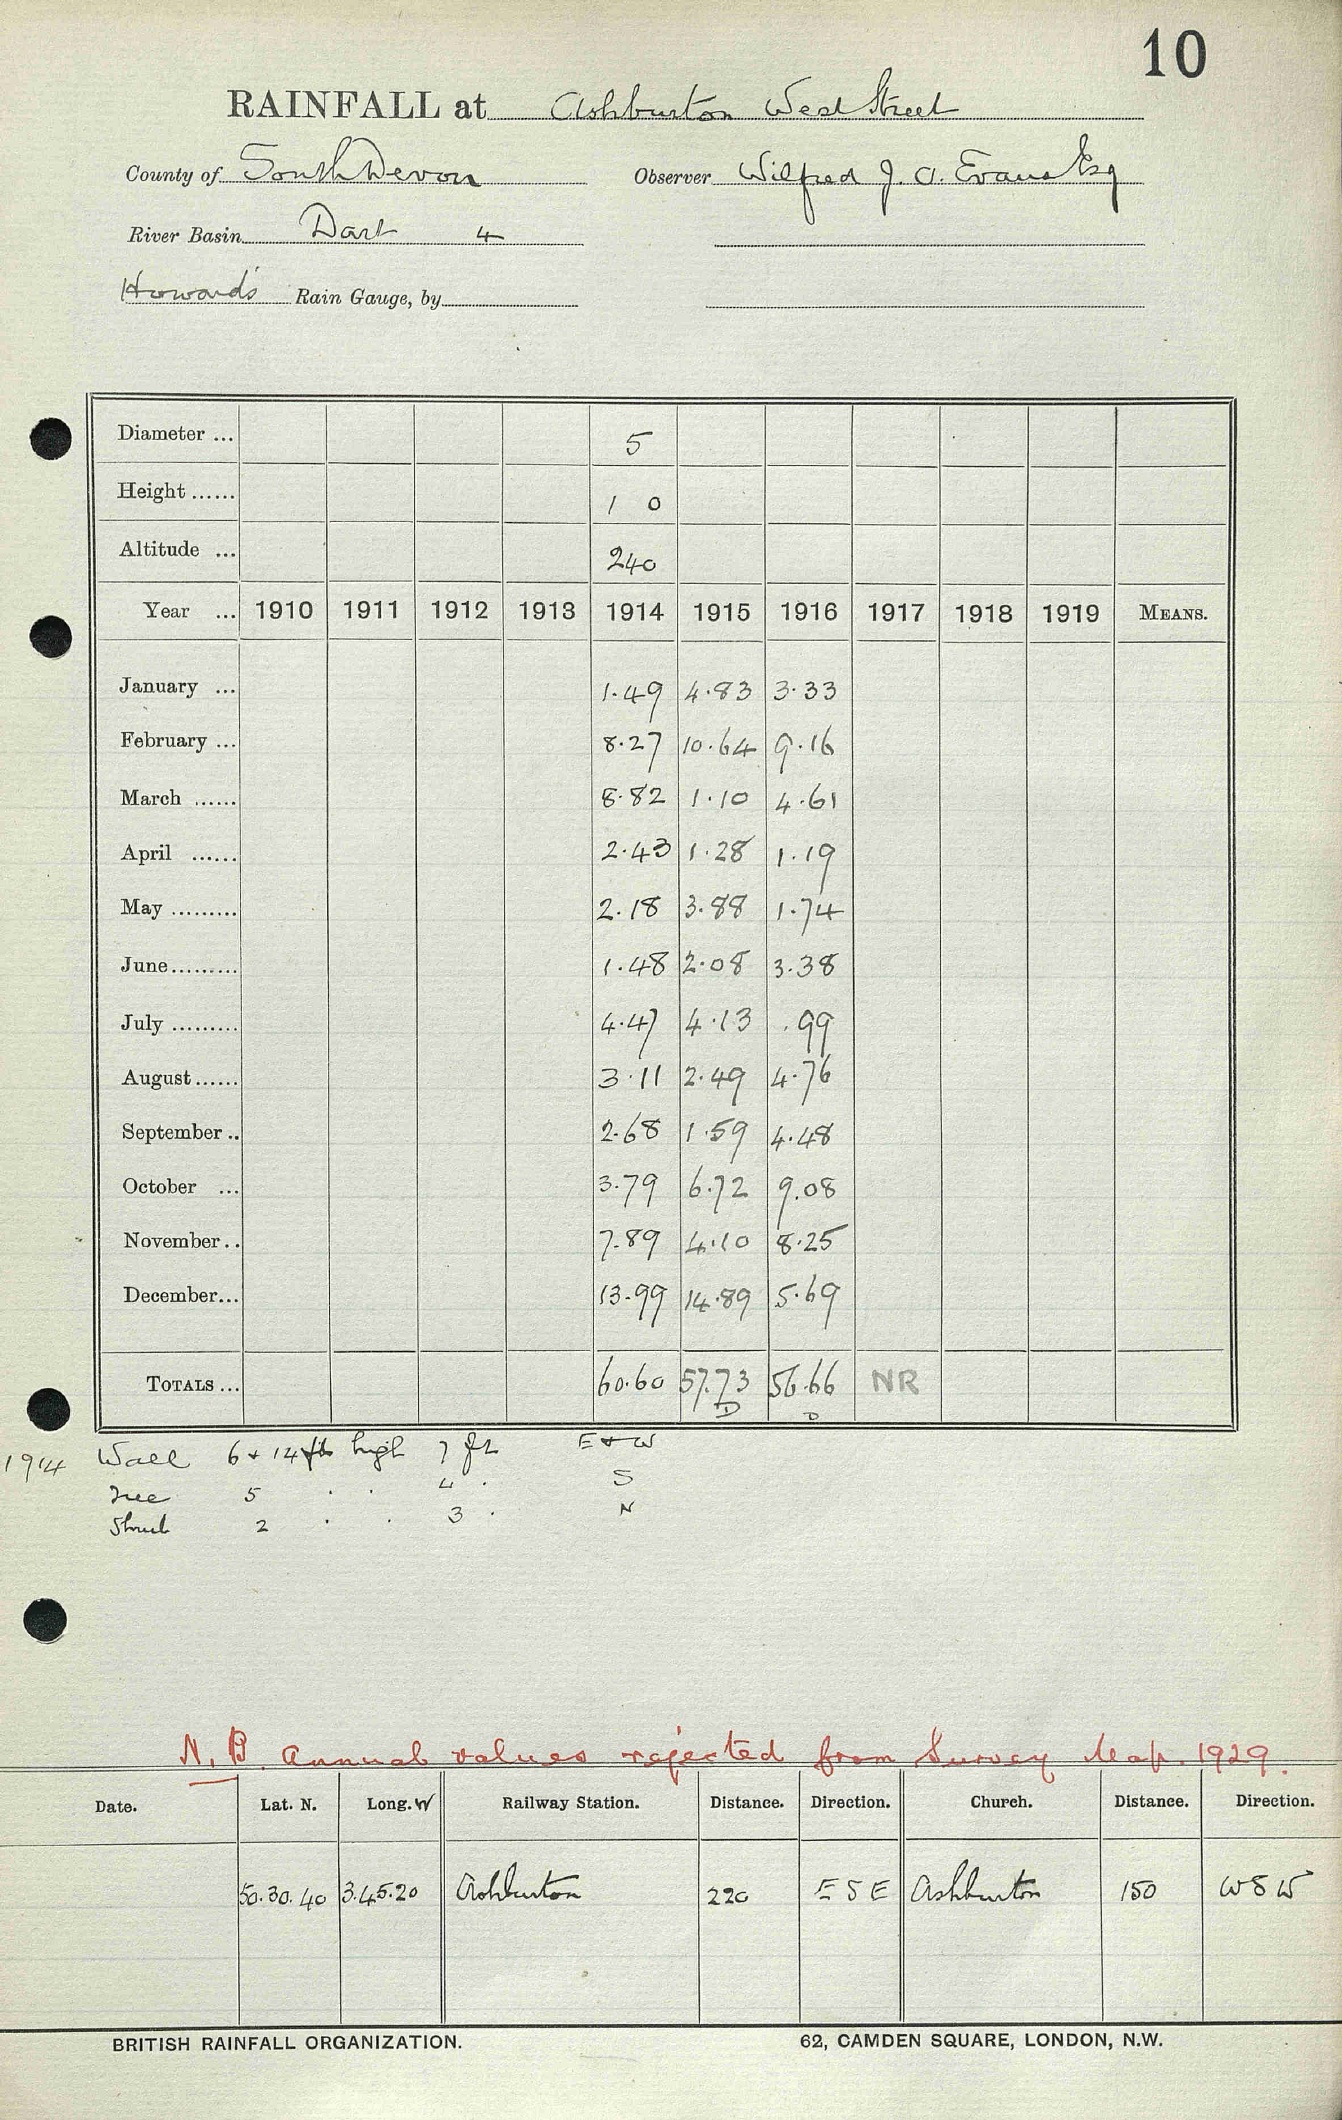 10
RAINFALL at Ashburton West Street
County of South Devon Observer Wilfred J. A. Evans Esq
River Basin Dart 4
Howard's Rain Gauge, by
Diameter ... 5
Height ...... 1 0
Altitude ... 240
Year ... 1910 1911 1912 1913 1914 1915 1916 1917 1918 1919 MEANS.
January ... 1.49 4.83 3.33
February ... 8.27 10.64 9.16
March ...... 8.82 1.10 4.61
April ...... 2.43 1.28 1.19
May ......... 2.18 3.88 1.74
June......... 1.48 2.08 3.38
July ......... 4.47 4.13 .99
August...... 3.11 2.49 4.76
September .. 2.68 1.59 4.48
October ... 3.79 6.72 9.08
November.. 7.89 4.10 8.25
December... 13.99 14.89 5.69
TOTALS ... 60.60 57.73 56.66 NR
D D
1914 Wall 6 + 14 ft high 7 ft E + W
Tree 5 . . 4 . S
Shrub 2 . . 3 . N
N.B. Annual values rejected from Survey Map. 1929.
Date. Lat. N. Long. W Railway Station. Distance. Direction. Church. Distance. Direction.
50.30.40 3.45.20 Ashburton 220 E S E Ashburton 150 W S W
BRITISH RAINFALL ORGANIZATION. 62, CAMDEN SQUARE, LONDON, N.W.